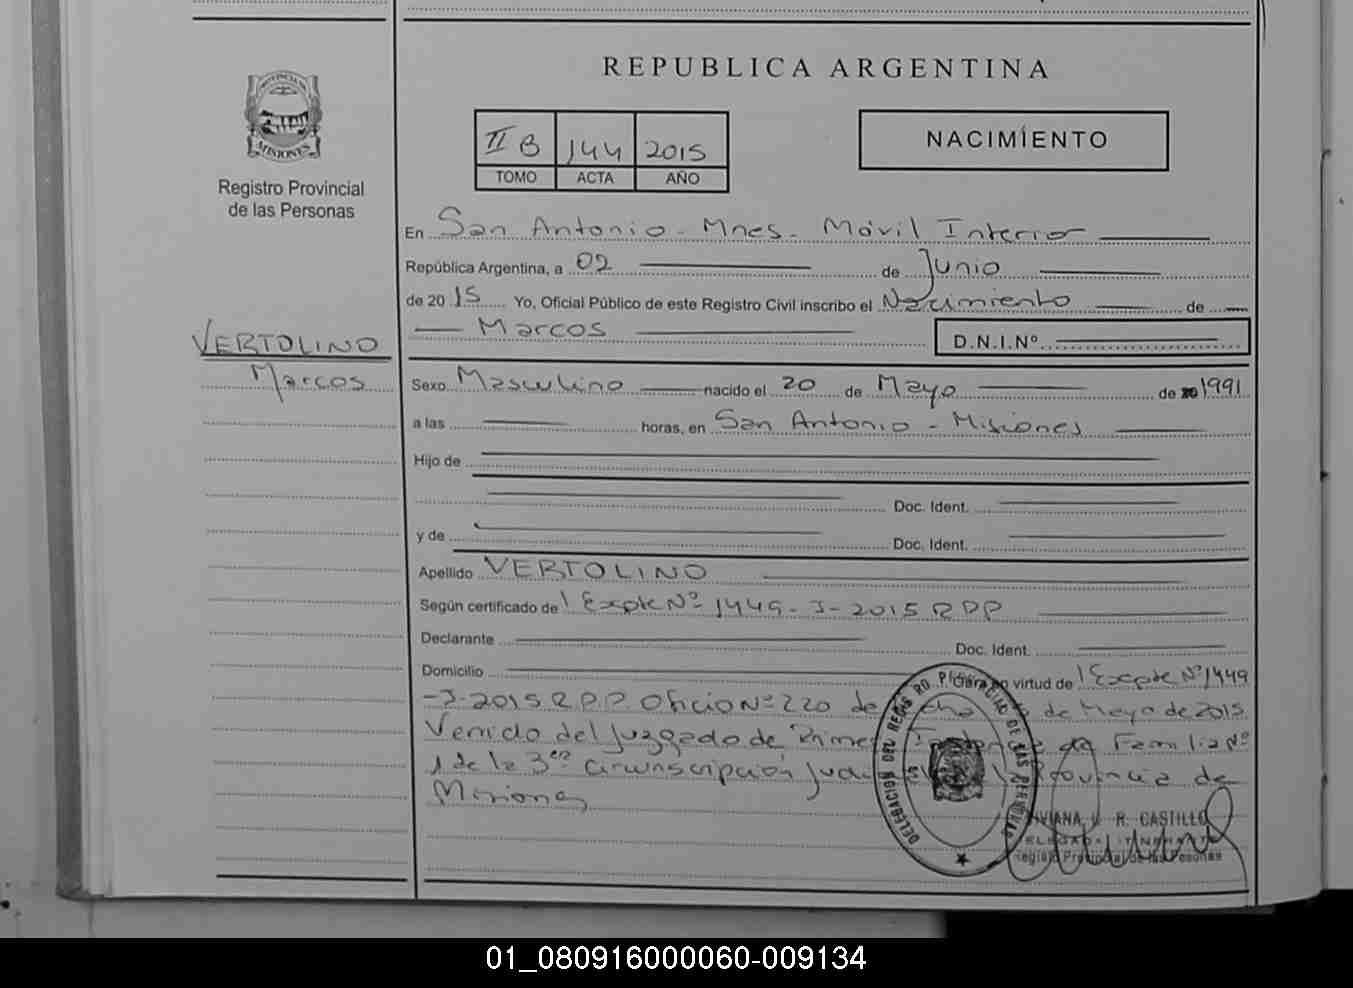 PROVINCIA DE
MISIONES
Registro Provincial
de las Personas
VERTOLINO
Marcos
REPUBLICA ARGENTINA
II B 144 2015
TOMO ACTA AÑO
NACIMIENTO
En San Antonio - Mnes - Móvil Interior
República Argentina, a 02 de Junio
de 2015 Yo, Oficial Público de este Registro Civil inscribo el Nacimiento de
Marcos
D.N.I.Nº
Sexo Masculino nacido el 20 de Mayo de 1991
a las horas, en San Antonio - Misiones
Hijo de
Doc. Ident.
y de Doc. Ident.
Apellido VERTOLINO
Según certificado de Expte Nº 1449 - J - 2015 RPP
Declarante Doc. Ident.
Domicilio
Obra en virtud de Expte Nº 1449
- J - 2015 RPP Oficio Nº 220 de fecha de Mayo de 2015
Venido del Juzgado de Primera Instancia de Familia Nº
1 de la 3era circunscripción Judicial de la Provincia de
Misiones
DELEGACION DEL REGISTRO P. DE LAS PERSONAS
VIVIANA R. CASTILLO
DELEGADA ITINERANTE
Registro Provincial de las Personas
01_080916000060-009134